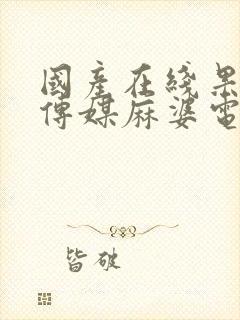 國產在綫果
傳媒麻婆電
皆破